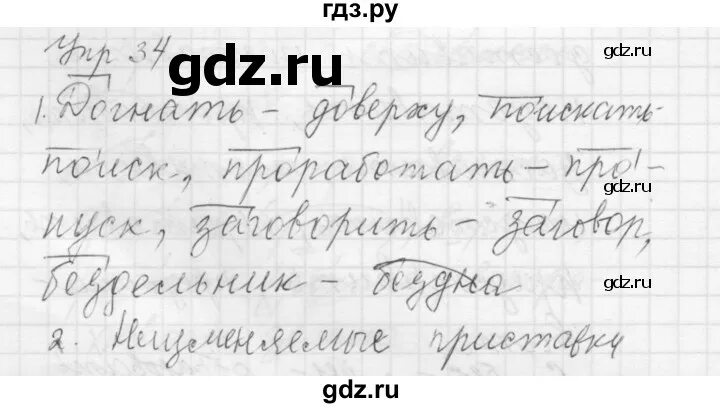 гдз.ру
Упр 34
gdz.ru
gdz.ru
1. Догнать – доверху, поискать-
gdz.ru
поиск, проработать – про-
пуск, заговорить – заговор,
бездельник – бездна
gdz.ru
2. Неизменяемые приставки
gdz.ru